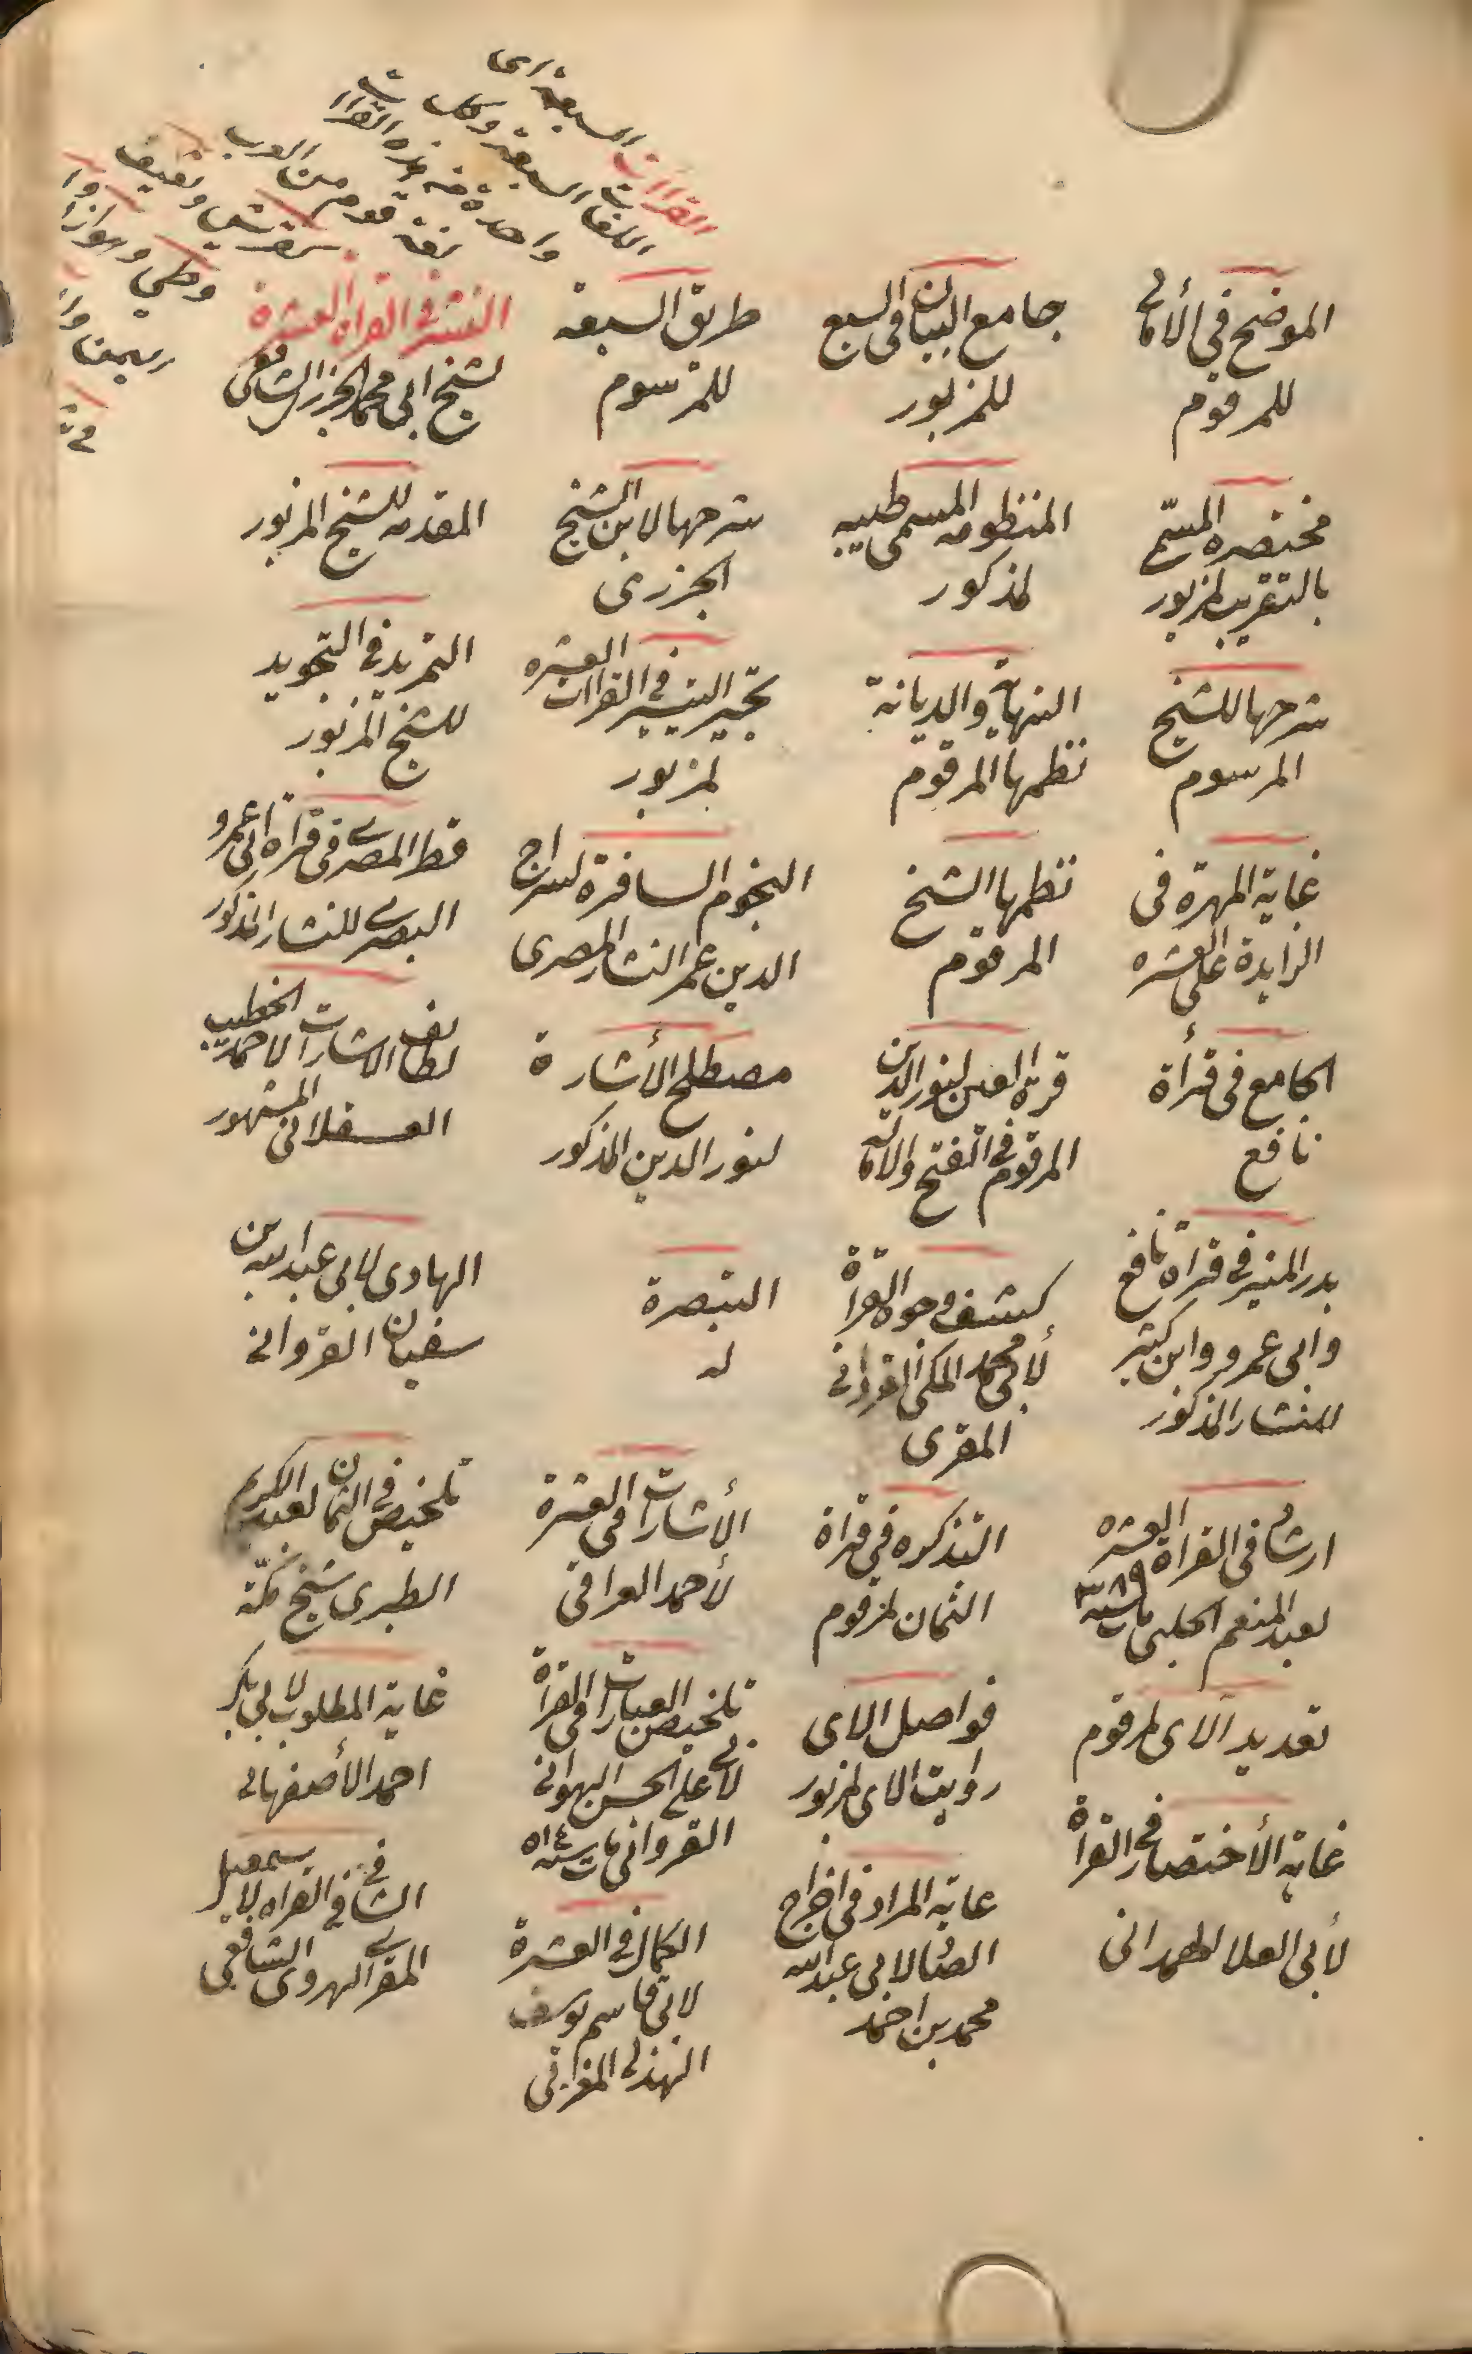 القراات السبعة اى
اللغات السبعة وكلمات
واحدة من هذه القراات
لغة قوم من العرب
كقريش وثقيف
وطي وهوازن
الموضح فى الأمالى
للمرقوم
جامع البيان فى السبع
للمزبور
طريق السبعة
للمرسوم
النشر فى القراة العشرة
لشيخ ابى محمد الجزرى الشافعى
مختصره المسمّى
بالتقريب لمزبور
المنظومه المسمى طيبه
لمذكور
شرحها لابن الشيخ
الجزرى
المقدمه للشيخ المزبور
شرحها للشيخ
المرسوم
النهاية والديانة
نظمها المرقوم
تحبير التيسير فى القراات العشره
لمزبور
التمريد فى التجويد
للشيخ المزبور
غاية المهرة فى
الزايدة على العشره
نظمها الشيخ
المرقوم
النجوم السافرة لسراج
الدين عمر النشار المصرى
قطر المصرى فى قراة ابى عمرو
البصرى للنشار المذكور
الجامع فى قرأة
نافع
قرة العين لنور الدين
المرقوم فى الفتح والامالة
مصطلح الأشارة
لنور الدين المذكور
لطائف الاشارات لاحمد الخطيب
العسقلانى المشهور
بدر المنير فى قراة نافع
وابى عمرو وابن كثير
للنشار المذكور
كشف وجوه القرأة
لأبى محمد المكى القروانى
المقرى
التبصرة
له
الهادى لابى عبد الله بن
سفيان القروانى
ارشاد فى القراة العشره
لعبد المنعم الحلبى مات سنه ٣٨٩
التذكره فى قراة
الثمان لمرقوم
الأشارات فى العشرة
لأحمد العراقى
تلخيص فى الثمان لعبد الكريم
الطبرى شيخ مكّة
تعديد الاى لمرقوم
فواصل الاى
روايت الاى لمزبور
تلخيص العبارات فى القرأة
لابى على الحسن الهوانى
القروانى مات سنه ٥١٤
غاية المطلوب لابى بكر
احمد الأصفهانى
غاية الأختصار فى القرأة
لأبى العلا الهمدانى
غاية المراد فى اخراج
الضاد لابى عبد الله
محمد بن احمد
الكمال فى العشرة
لابى قاسم يوسف
الهذلى المغربى
الشافى فى القراه لا سمعيل
المقرى الهروى الشافعى